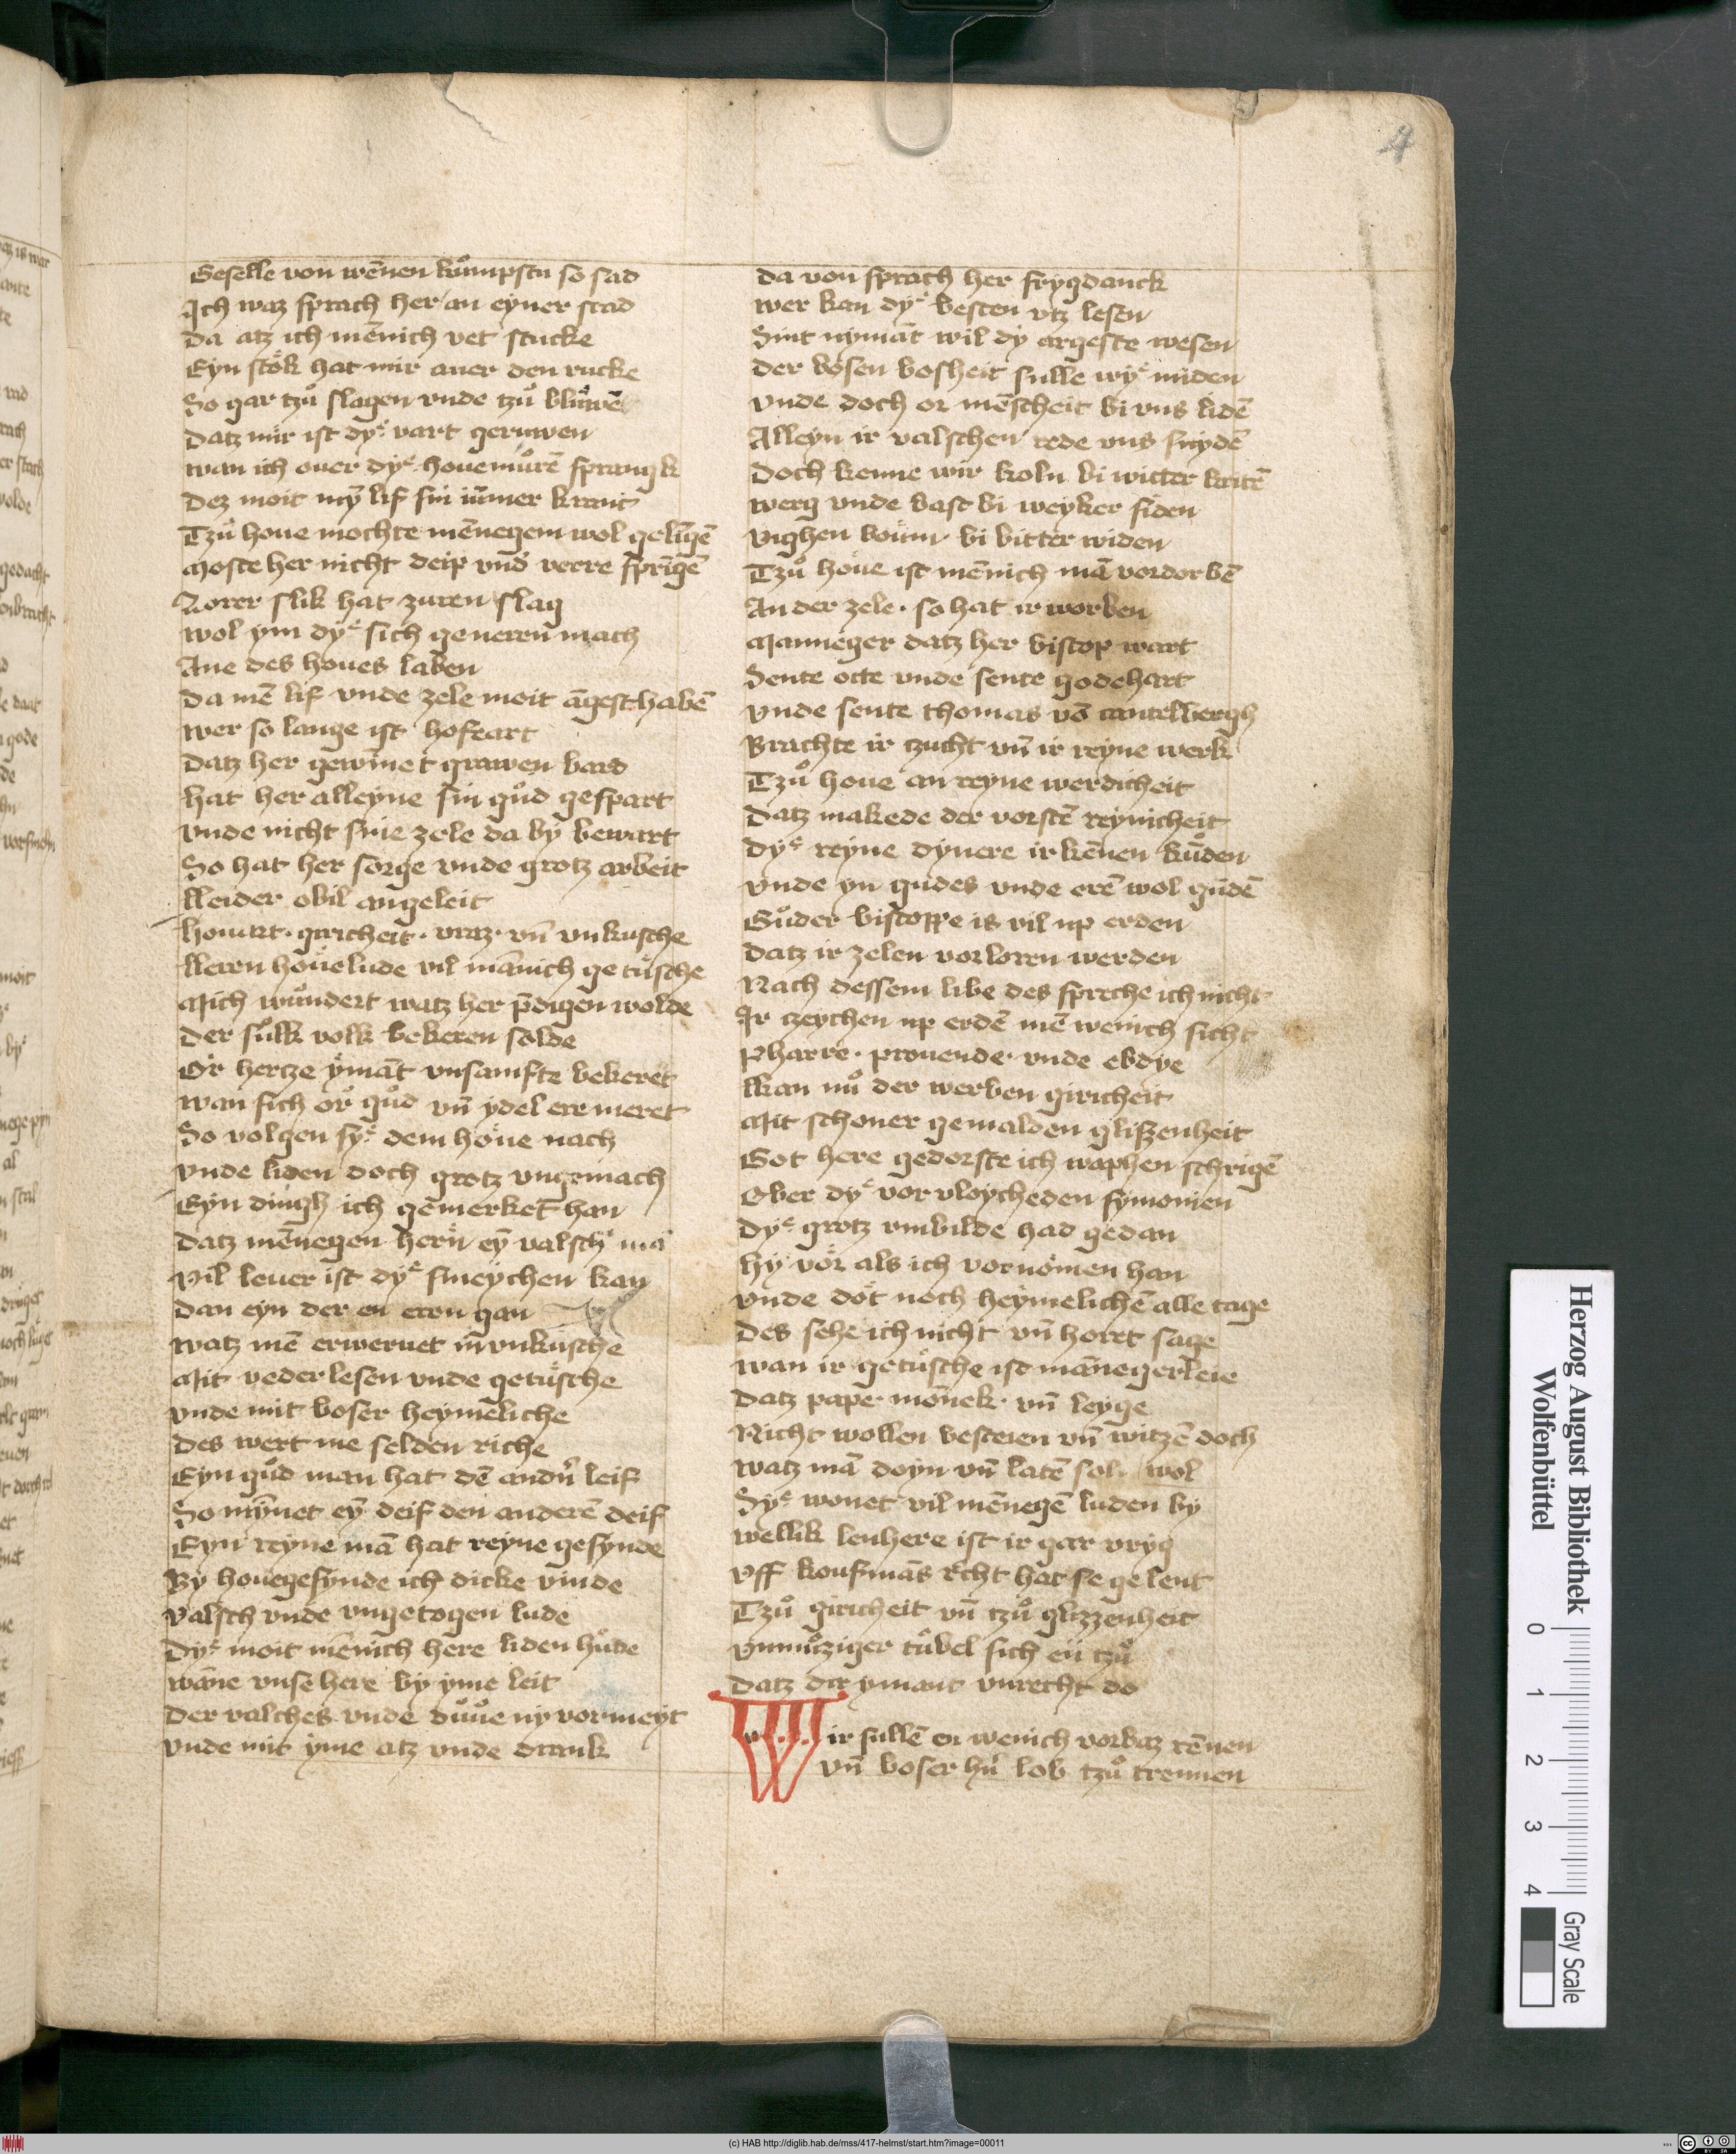 4
Geselle von wēnen kuͦmpstu so sad
Ich waz sprach her an eyner stad
Da atz ich mēnich vet stucke
Eyn stok hat mir auer den rucke
So gar tzuͦ slagen vnde tzuͦ bluͦwē
Datz mir ist dyͤ vart geruwen
wan ich ouer dyͤ houemuͦrē sprangk
Dez moit mȳ lif sin iūmer krank
Tzuͦ houe mochte mēnegem wol gelīgē
Moste her nicht deip vnd verre sprīgē
slik hat zuren slag
wol ym dyͤ sich generen mach
Ane des houes laben
Da mē lif vnde zele moit āgest habē
wer so lange ist hofeart
Datz her gewīnet grawen bard
hat her alleyne sin guͦd gespart
vnde nicht sine zele da by bewart
So hat her sorge vnde grotz arbeit
lleider obil angeleit
houart · giricheit · vraz · vn̄ vnkusche
lleren houelude vil mānich getuͤsche
Mich wuͦndert watz her p̄digen wolde
Der suͦlk volk bekeren solde
Or hertze ymāt vnsamfte bekeret
wan sich or guͦd vn̄ ydel ere meret
So volgen syͤ dem houe nach
vnde liden doch grotz vngemach
Eyn dingh ich gemerket han
Datz mēnegen hern eȳ valschͤ mā
Vil leuer ist dyͤ smeychen kan
Dan eyn der en eren gan
watz mē erweruet m̄ vnkusche
Mit vederlesen vnde getuͤsche
vnde mit boser heymeliche
Des wert me selden riche
Eyn guͦd man hat dē andn̄ leif
So mȳnet eȳ deif den anderē deif
Eyn reyne mā hat reyne gesynde
By houegesynde ich dicke vinde
Valsch vnde vngetogen lude
Dyͤ moit mēnich here liden huͦde
wāne vnse here by yme leit
Der valches vnde duͦue ny vormeyt
vnde mit yme atz vnde drank
Da von sprach her frygdanck
wer kan dyͤ besten vtz lesen
Sint nymāt wil dy argeste wesen
Der bosen bosheit sulle wyͤ miden
vnde doch or mēscheit bi vns lidē
Alleyn ir valschen rede vns snydē
Doch kenne wir koln bi witter kritē
werg vnde bast bi weyker siden
Vighen boum · bi bitter widen
Tzuͦ houe ist mēnich mā vordorbē
An der zele · so hat ir worben
Manneger datz her biscop wart
Sente otte vnde sente godehart
vnde sente thomas vō cantelbergh
Brachte ir tzucht vn̄ ir reyne werk
Tzuͦ houe an reyne werdicheit
Datz makede der vorstē reynicheit
Dyͤ reyne dynere irkēnen kuͦden
vnde yn gudes vnde erē wol gūdē
Guͦder biscoppe is vil up erden
Datz ir zelen vorloren werden
Nach dessem libe des spreche ich nicht
Ir tzeychen up erdē mē wenich sicht
Pharre · prouende · vnde ebdye
llkan nuͦ der werben giricheit
Mit schoner gemalden glißenheit
Got here gedorste ich waphen schrigē
Ober dyͤ vor vloycheden symonien
Dyͤ grotz vmbilde had gedan
hy vor als ich vornomen han
vnde dot noch heymelichē alle tage
Des sehe ich nicht vn̄ horet sage
wan ir getuͤsche ist mānegerleie
Datz pape · monek · vn̄ leyge
Nicht wollen besteren vn̄ witzē doch
watz mā doyn vn̄ latē sol wol
Syͤ wonet vil mēnegē luden by
wellik lenhere ist ir gar vryg
Vff koufmās recht hat se gelent
Tzuͦ giricheit vn̄ tzuͦ glizzenheit
vnmuͦziger tuͤbel sich en tzuͦ
Datz dir ymant vnrecht do
Wir sullē en wenich vorbaz rēnen
vn̄ boser hn̄ lob tzuͦ trennen
Herzog August Bibliothek
Wolfenbüttel
0 1 2 3 4
Gray Scale
(c) HAB http://diglib.hab.de/mss/417-helmst/start.htm?image=00011